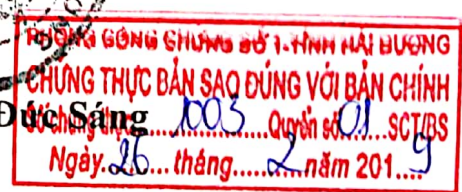 PHÒNG CÔNG CHỨNG SỐ 1-TỈNH HẢI DƯƠNG
CHỨNG THỰC BẢN SAO ĐÚNG VỚI BẢN CHÍNH
Đức Sáng
1003 Quyển số 01 SCT/BS
Ngày 26 tháng 2 năm 2019